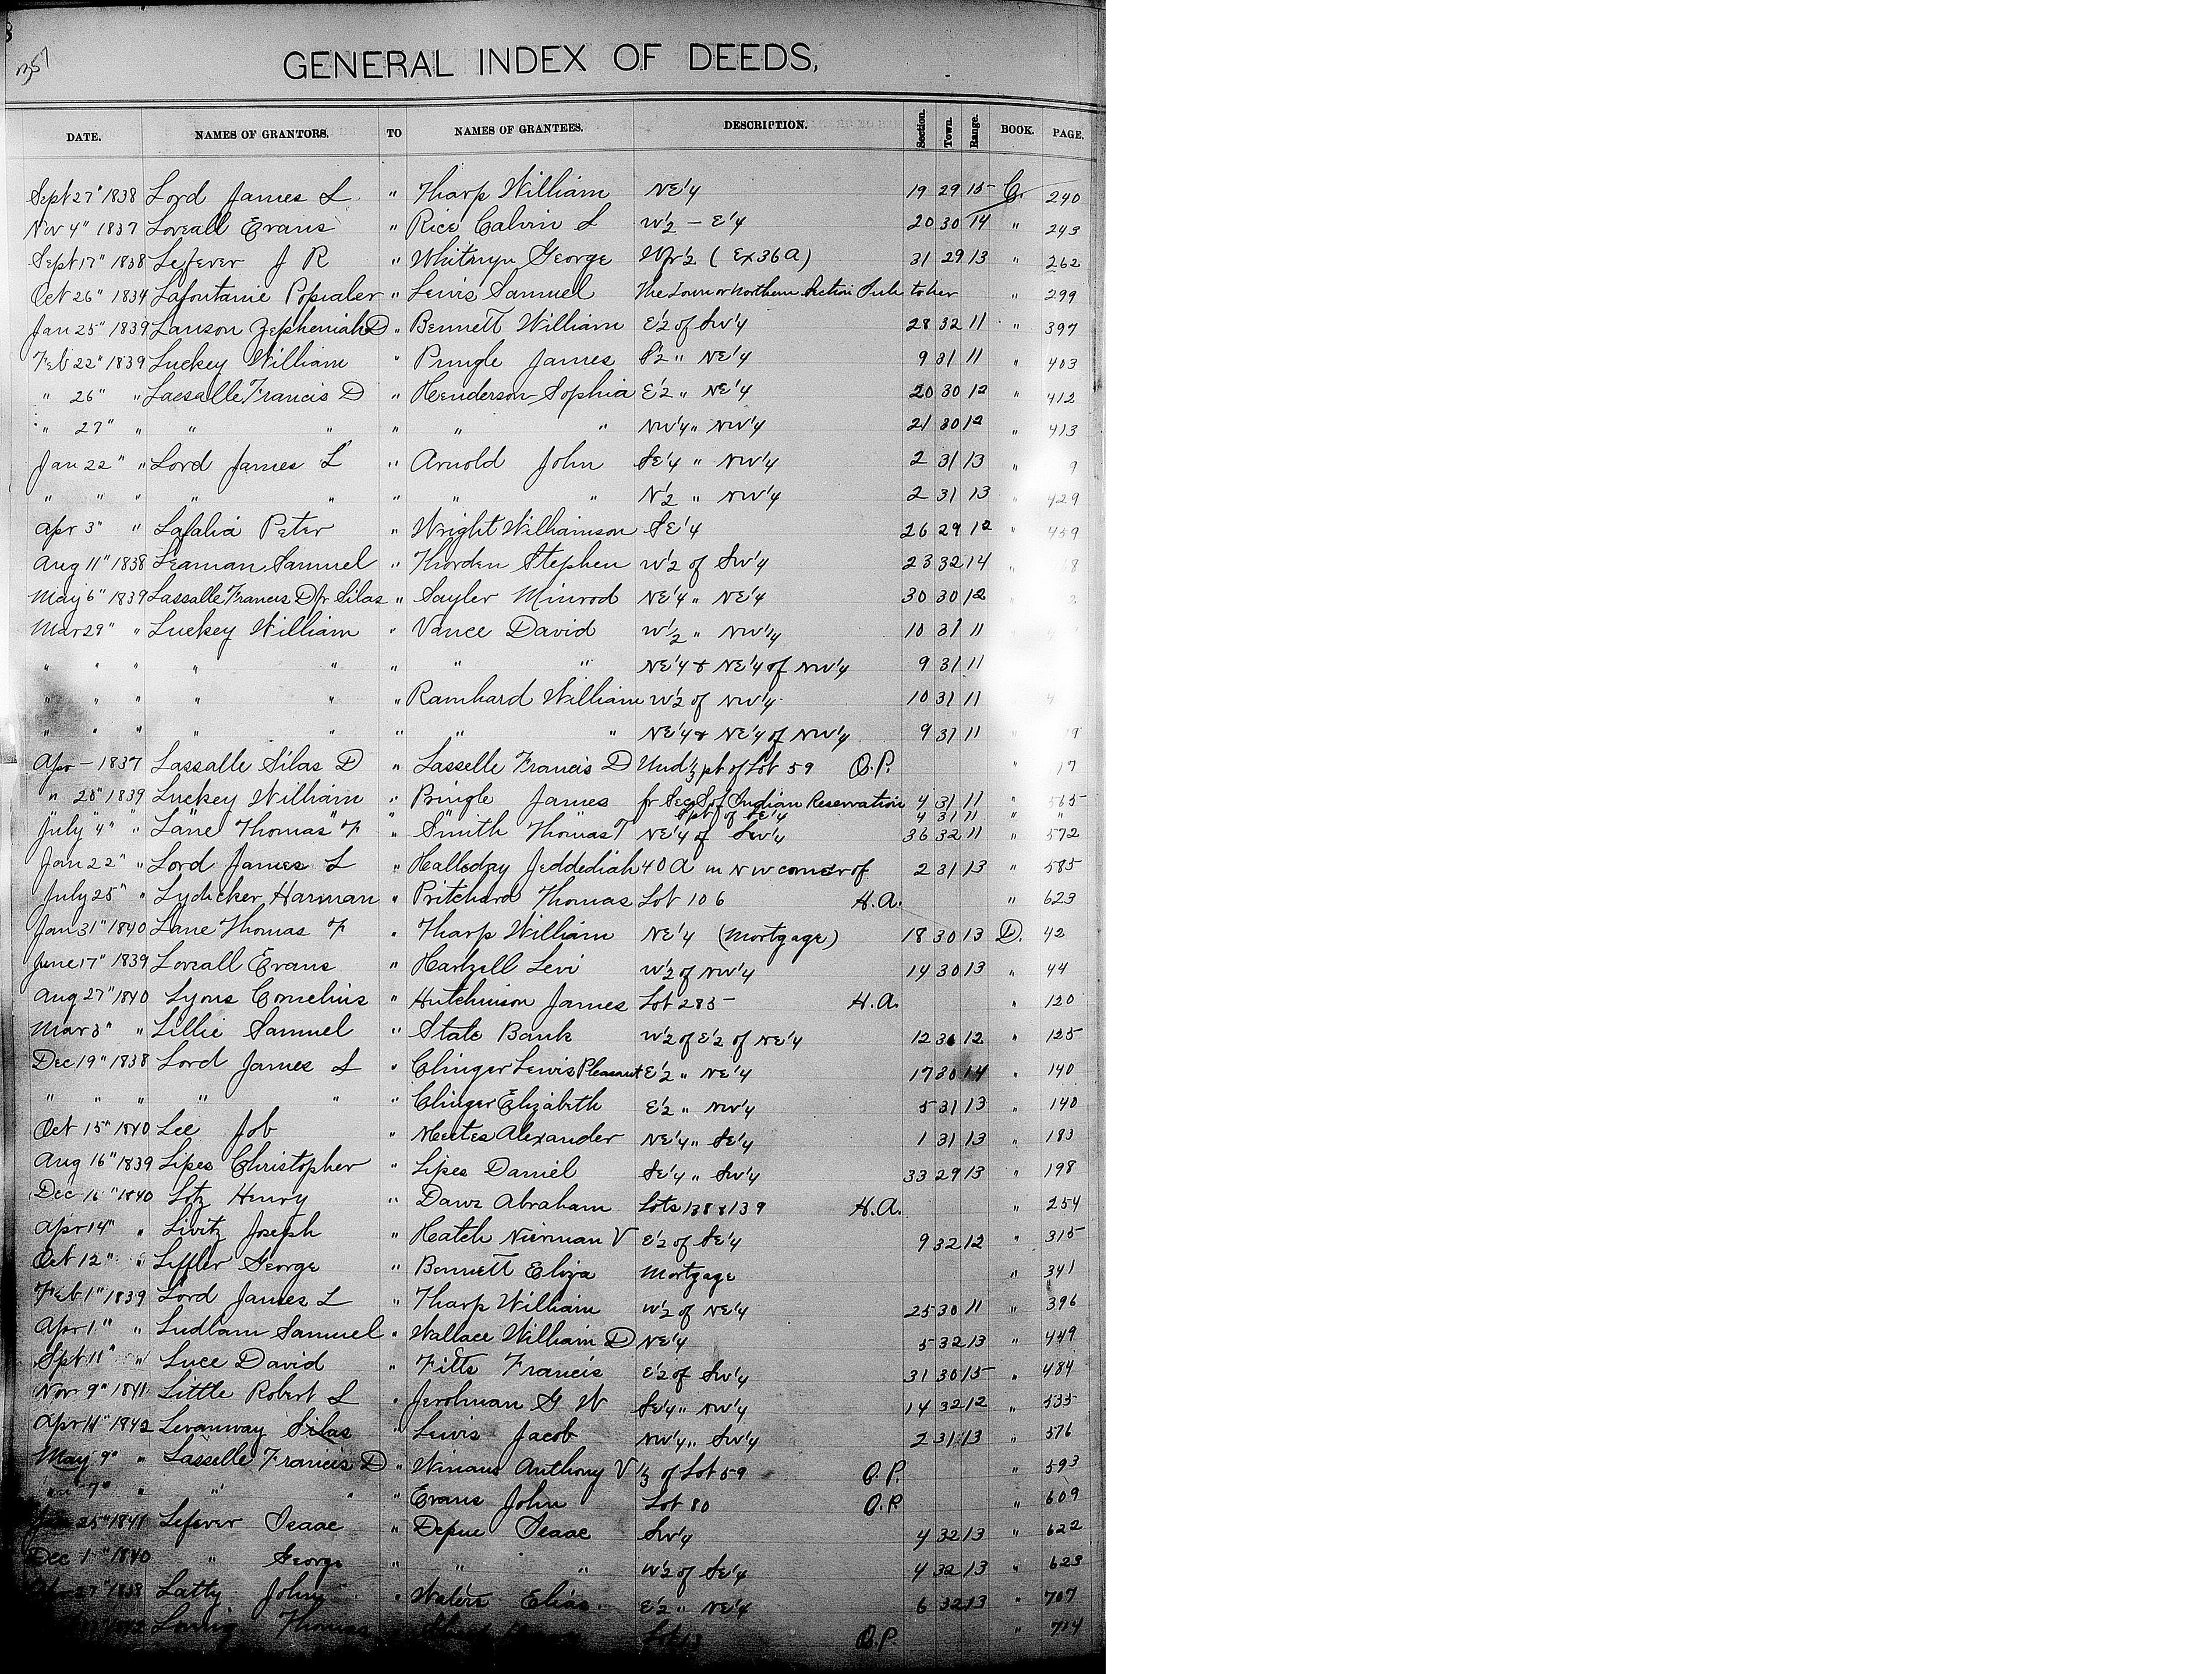 351
GENERAL INDEX OF DEEDS,
DATE. NAMES OF GRANTORS. TO NAMES OF GRANTEES. DESCRIPTION. Section. Town. Range. BOOK. PAGE.
Sept 27" 1838 Lord James L " Tharp William NE 1/4 19 29 15 C. 240
Nov 4" 1837 Loveall Evans " Rice Calvin L W 1/2 – E 1/4 20 30 14 " 243
Sept 17" 1838 Lefever J R " George Wfr 1/2 (Ex 36 a) 31 29 13 " 262
Oct 26" 1834 Lafontanie " Lewis Samuel The Town or Northern Section " 299
Jan 25" 1839 Lawson Zepheniah D " Bennett William E 1/2 of SW 1/4 28 32 11 " 397
Feb 22" 1839 Luckey William " Pringle James S 1/2 " NE 1/4 9 31 11 " 403
" 26" " Lassalle Francis D " Henderson Sophia E 1/2 " NE 1/4 20 30 12 " 412
" 27" " " " " " " NW 1/4 " NW 1/4 21 30 12 " 413
Jan 22" " Lord James L " Arnold John SE 1/4 " NW 1/4 2 31 13 " 9
" " " " " " " " N 1/2 " NW 1/4 2 31 13 " 429
Apr 3" " Lafalia Peter " Wright Williamson SE 1/4 26 29 12 " 459
Aug 11" 1838 Leaman Samuel " Thorden Stephen W 1/2 of SW 1/4 23 32 14 "
May 6" 1839 Lassalle Francis D fr Silas " Sayler Minrod NE 1/4 " NE 1/4 30 30 12
Mar 29" " Luckey William " Vance David W 1/2 " NW 1/4 10 31 11
" " " " " " " " NE 1/4 & NE 1/4 of NW 1/4 9 31 11
" " " " " " Ramhard William W 1/2 of NW 1/4 10 31 11
" " " " " " " " NE 1/4 & NE 1/4 of NW 1/4 9 31 11
Apr – 1837 Lassalle Silas D " Lasselle Francis D Und 1/3 pt of Lot 59 O.P. " 17
" 20" 1839 Luckey William " Pringle James fr Sec S of Indian Reservation 4 31 11 " 565
" " " " " " " " Spt of SE 1/4 4 31 11 " "
July "4" " Lane Thomas F " Smith Thomas T NE 1/4 of SW 1/4 36 32 11 " 572
Jan 22" " Lord James L " Halleday Jeddediah 40 A in NW corner of 2 31 13 " 585
July 25" " Lydicker Harman " Pritchard Thomas Lot 106 H.A. " 623
Jan 31" 1840 Lane Thomas F " Tharp William NE 1/4 (Mortgage) 18 30 13 D. 42
June 17" 1839 Loveall Evans " Hartzell Levi W 1/2 of NW 1/4 14 30 13 " 44
Aug 27" 1840 Lyons Cornelius " Hutchinson James Lot 285 H.A. " 120
Mar 3" " Lillie Samuel " State Bank W 1/2 of E 1/2 of NE 1/4 12 12 " 125
Dec 19" 1838 Lord James L " Clinger Lewis Pleasant E 1/2 " NE 1/4 17 30 14 " 140
" " " " " " Clinger Elizabeth E 1/2 " NW 1/4 5 31 13 " 140
Oct 15" 1840 Lee Job " Alexander NE 1/4 " SE 1/4 1 31 13 " 183
Aug 16" 1839 Lipes Christopher " Lipes Daniel SE 1/4 " SW 1/4 33 29 13 " 198
Dec 16" 1840 Lotz Henry " Daws Abraham Lots 138 & 139 H.A. " 254
Apr 14" " Livitz Joseph " Hatch Nierman V E 1/2 of SE 1/4 9 32 12 " 315
Oct 12" " Leffler George " Bennett Eliza Mortgage " 341
Feb 1" 1839 Lord James L " Tharp William W 1/2 of NE 1/4 25 30 11 " 396
Apr 1" " Ludlam Samuel " Wallace William D NE 1/4 5 32 13 " 449
Spt 11" " Luce David " Fitts Francis E 1/2 of SW 1/4 31 30 15 " 484
Nov 9" 1841 Little Robert L " Jerolman G W SE 1/4 " NW 1/4 14 32 12 " 535
Apr 14" 1842 Levanway Silas " Lewis Jacob NW 1/4 " SW 1/4 2 31 13 " 576
May 9" " Lasselle Francis D " Winans Anthony V 1/3 of Lot 59 O.P. " 593
" 7" " " " " Evans John Lot 80 O.P. " 609
25" 1841 Lefever Isaac " Depue Isaac SW 1/4 4 32 13 " 622
Dec 1" 1840 " George " " " W 1/2 of SE 1/4 4 32 13 " 623
27" 1838 Latty John " Waters Elias E 1/2 " NE 1/4 6 32 13 " 707
Thomas Lot O.P. " 714